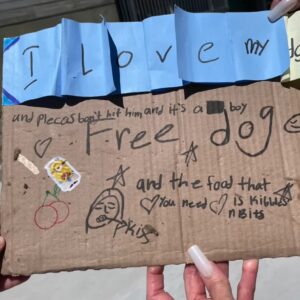 I Love my do
and plecas don't hit him and it's a boy
Free dog
and the food that
You need is Kibbles
n Bits